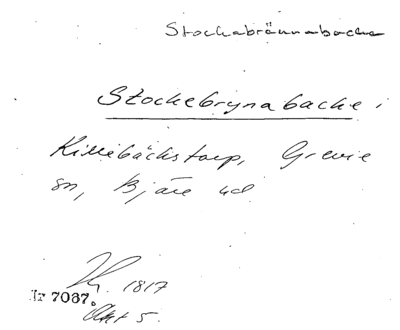 Stockabrännabacke
Stockebrynabacke,
Killebäckstorp, Grevie
sn, Bjäre hd
1817
Nr 7087.
Akt 5.